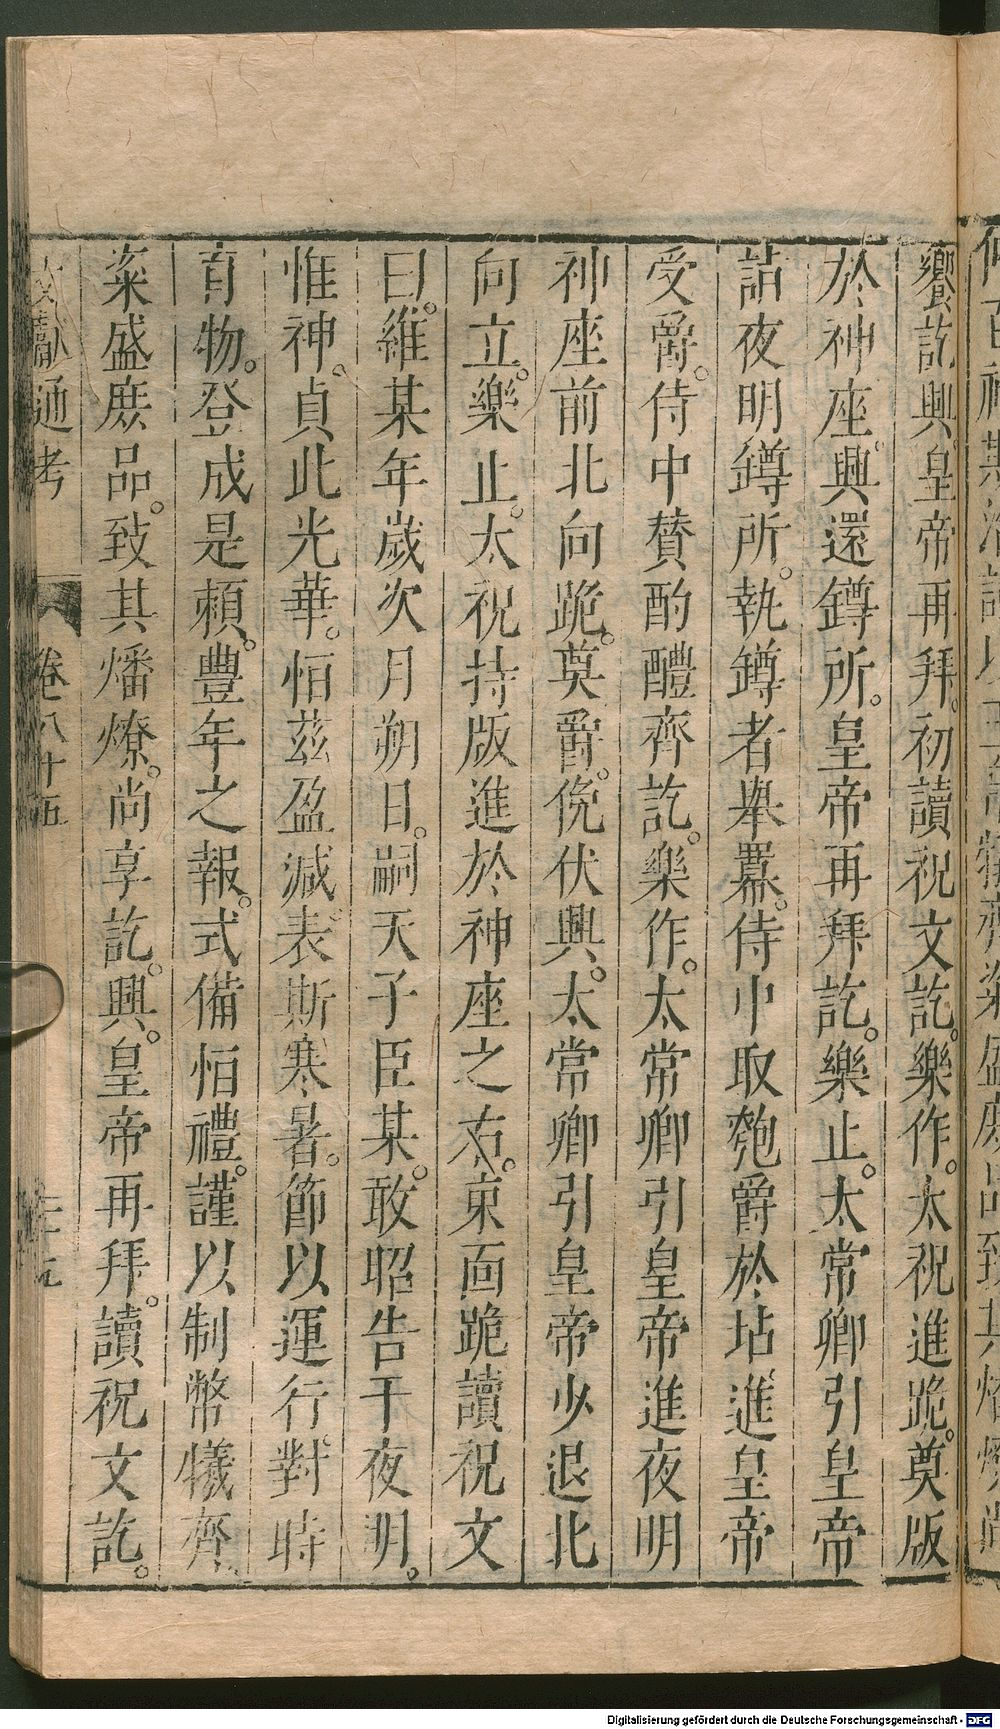 饗訖興皇帝再拜。初讀祝文訖。樂作。太祝進跪。奠版
於神座。興還鐏所。皇帝再拜訖。樂止。太常卿引皇帝
詣夜明鐏所。執鐏者舉羃。侍中取匏爵於坫進皇帝
受爵。侍中贊酌醴齊訖。樂作。太常卿引皇帝進夜明
神座前北向跪。奠爵。俛伏興。太常卿引皇帝少退北
向立。樂止。太祝持版進於神座之右。東面跪讀祝文
曰。維某年歲次月朔日。嗣天子臣某。敢昭告于夜明。
惟神。貞此光華。恒茲盈減。表斯寒暑。節以運行。對時
育物。登成是賴。豐年之報。式備恒禮。謹以制幣犧齊。
粢盛庶品。致其燔燎。尚享訖。興。皇帝再拜。讀祝文訖。
文獻通考 卷八十五
Digitalisierung gefördert durch die Deutsche Forschungsgemeinschaft - DFG